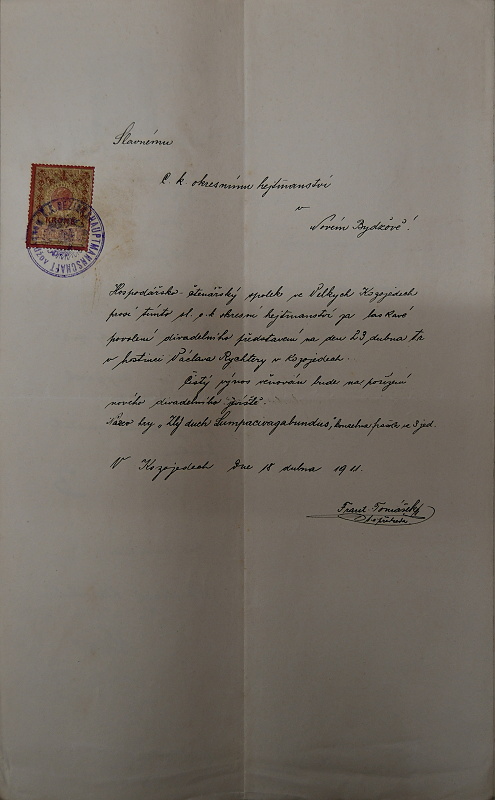 Slavnému
C. k. okresnímu hejtmanství
v
Novém Bydžově!
KRONE
BEZIRKSHAUPTMANNSCHAFT
Hospodářsko-čtenářský spolek ve Velkých Kozojedech
prosí tímto sl. c. k. okresní hejtmanství za laskavé
povolení divadelního představení na den 23 dubna t.r.
v hostinci Václava Rychtery v Kozojedech.
Čistý výnos věnován bude na pořízení
nového divadelního jeviště.
Název hry „Zlý duch Lumpacivagabundus", fraška ve 3 jed.
V Kozojedech dne 18 dubna 1911.
Frant Tomášek